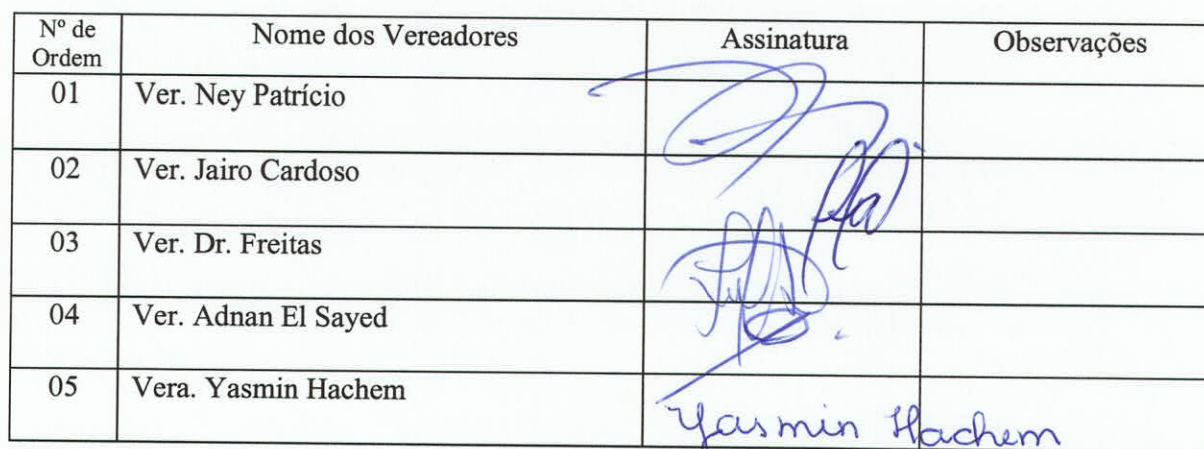 Nº de Ordem Nome dos Vereadores Assinatura Observações
01 Ver. Ney Patrício
02 Ver. Jairo Cardoso
03 Ver. Dr. Freitas
04 Ver. Adnan El Sayed
05 Vera. Yasmin Hachem Yasmin Hachem